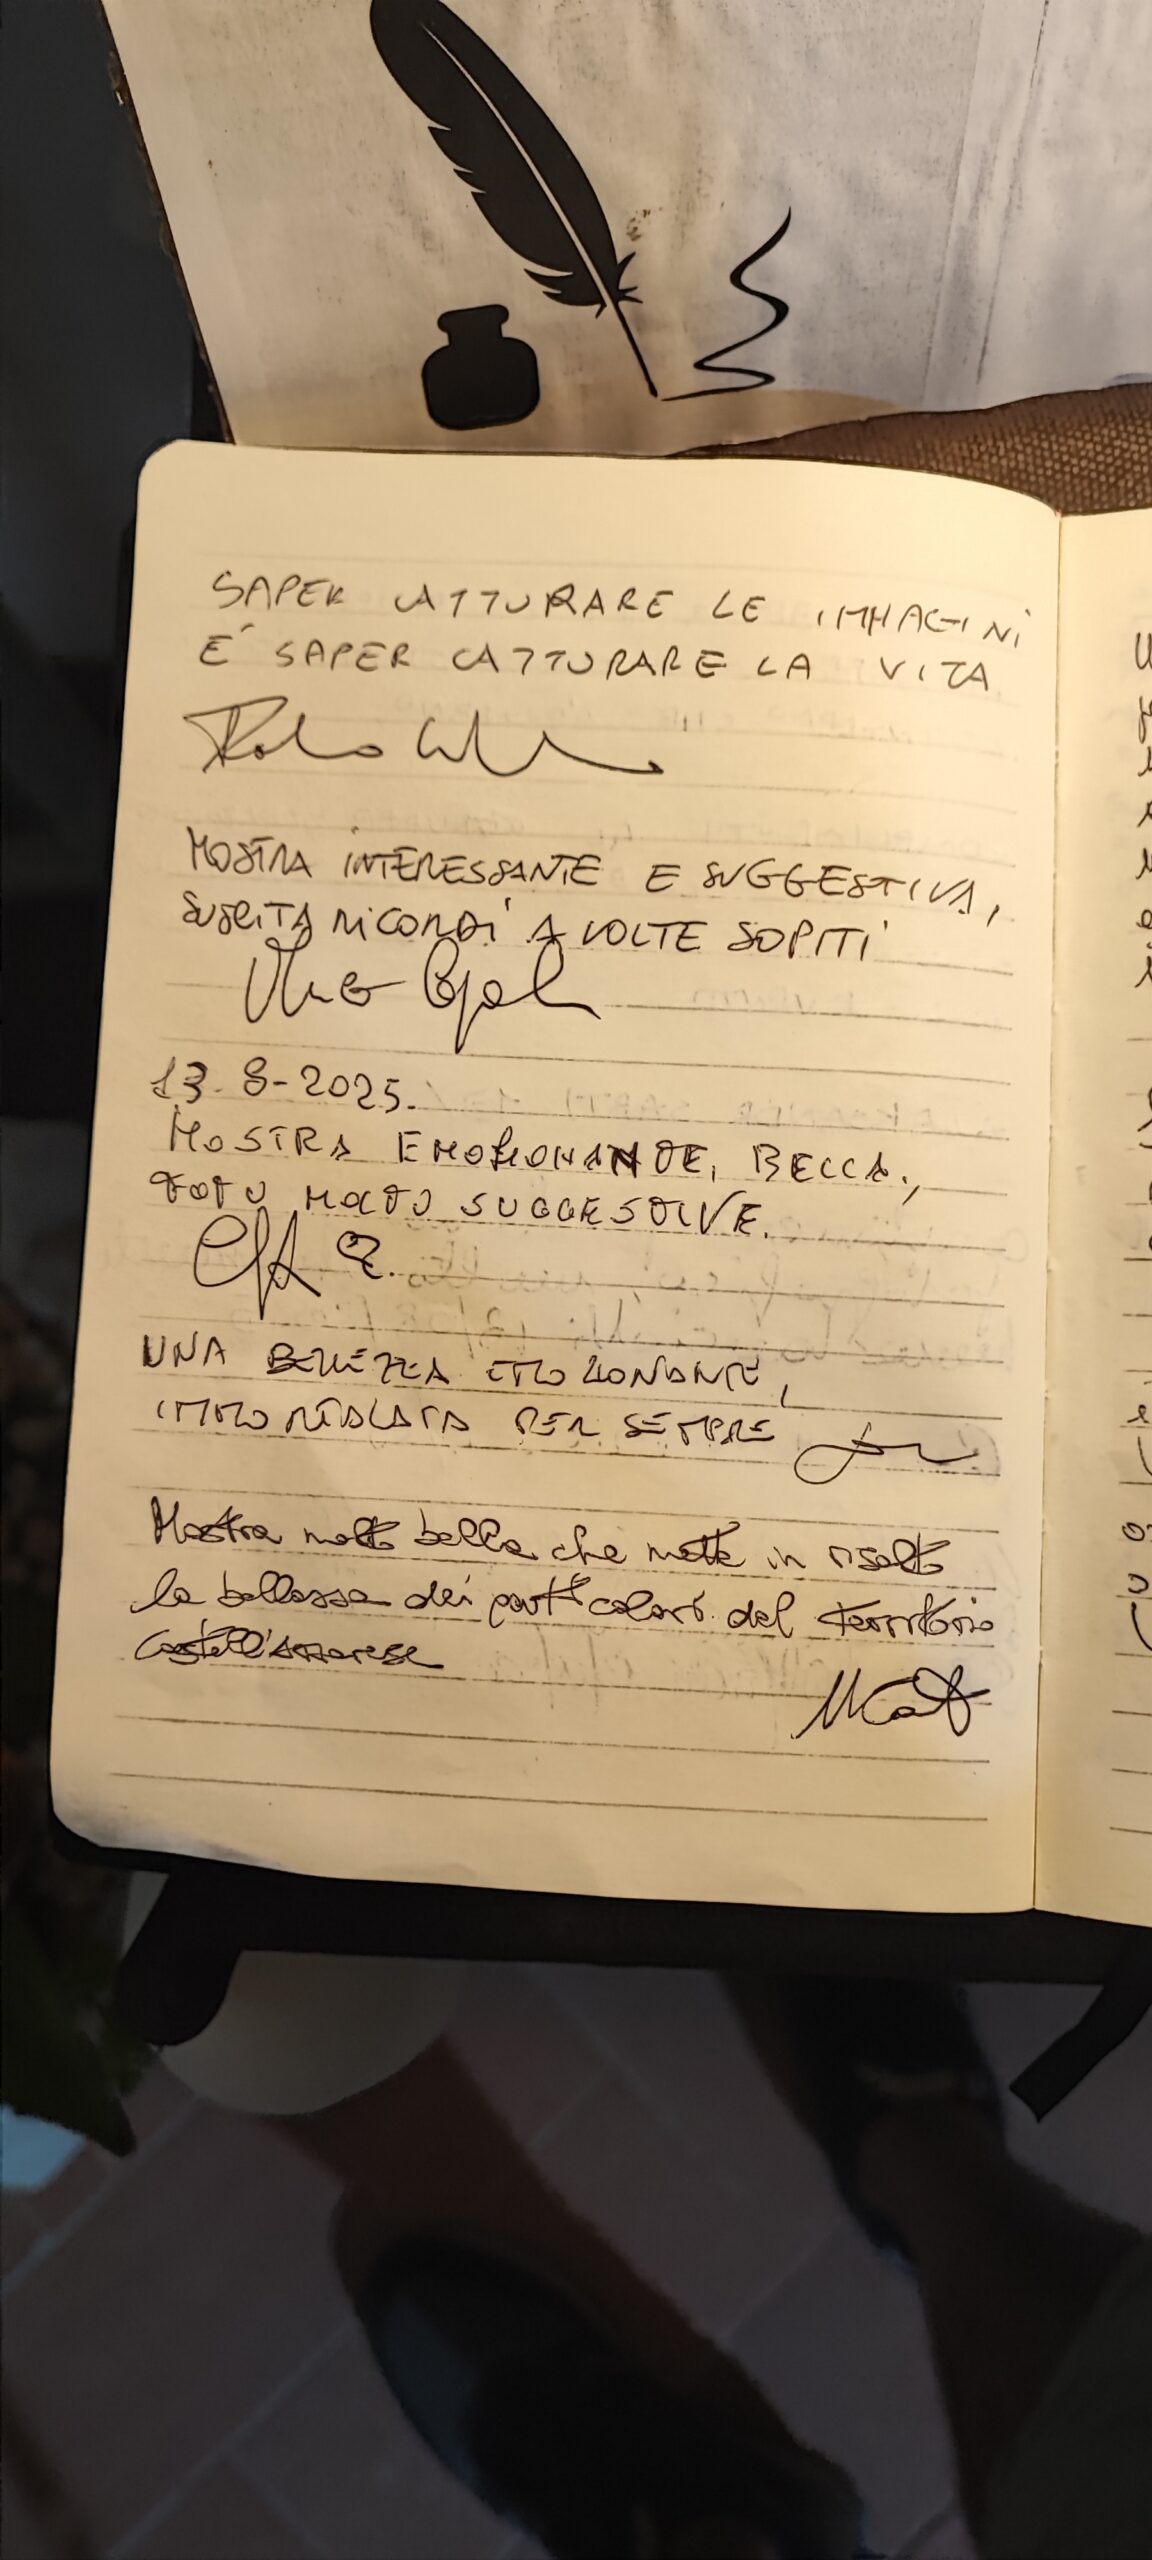 SAPER CATTURARE LE IMMAGINI
E' SAPER CATTURARE LA VITA
MOSTRA INTERESSANTE E SUGGESTIVA,
SUSCITA RICORDI A VOLTE SOPITI
13-8-2025.
MOSTRA EMOZIONANTE, BELLA,
FOTO MOLTO SUGGESTIVE.
UNA BELLEZZA EMOZIONANTE,
IMMORTALATA PER SEMPRE
Mostra molto bella che mette in risalto
la bellezza dei particolari del territorio
Castell'Azzarese